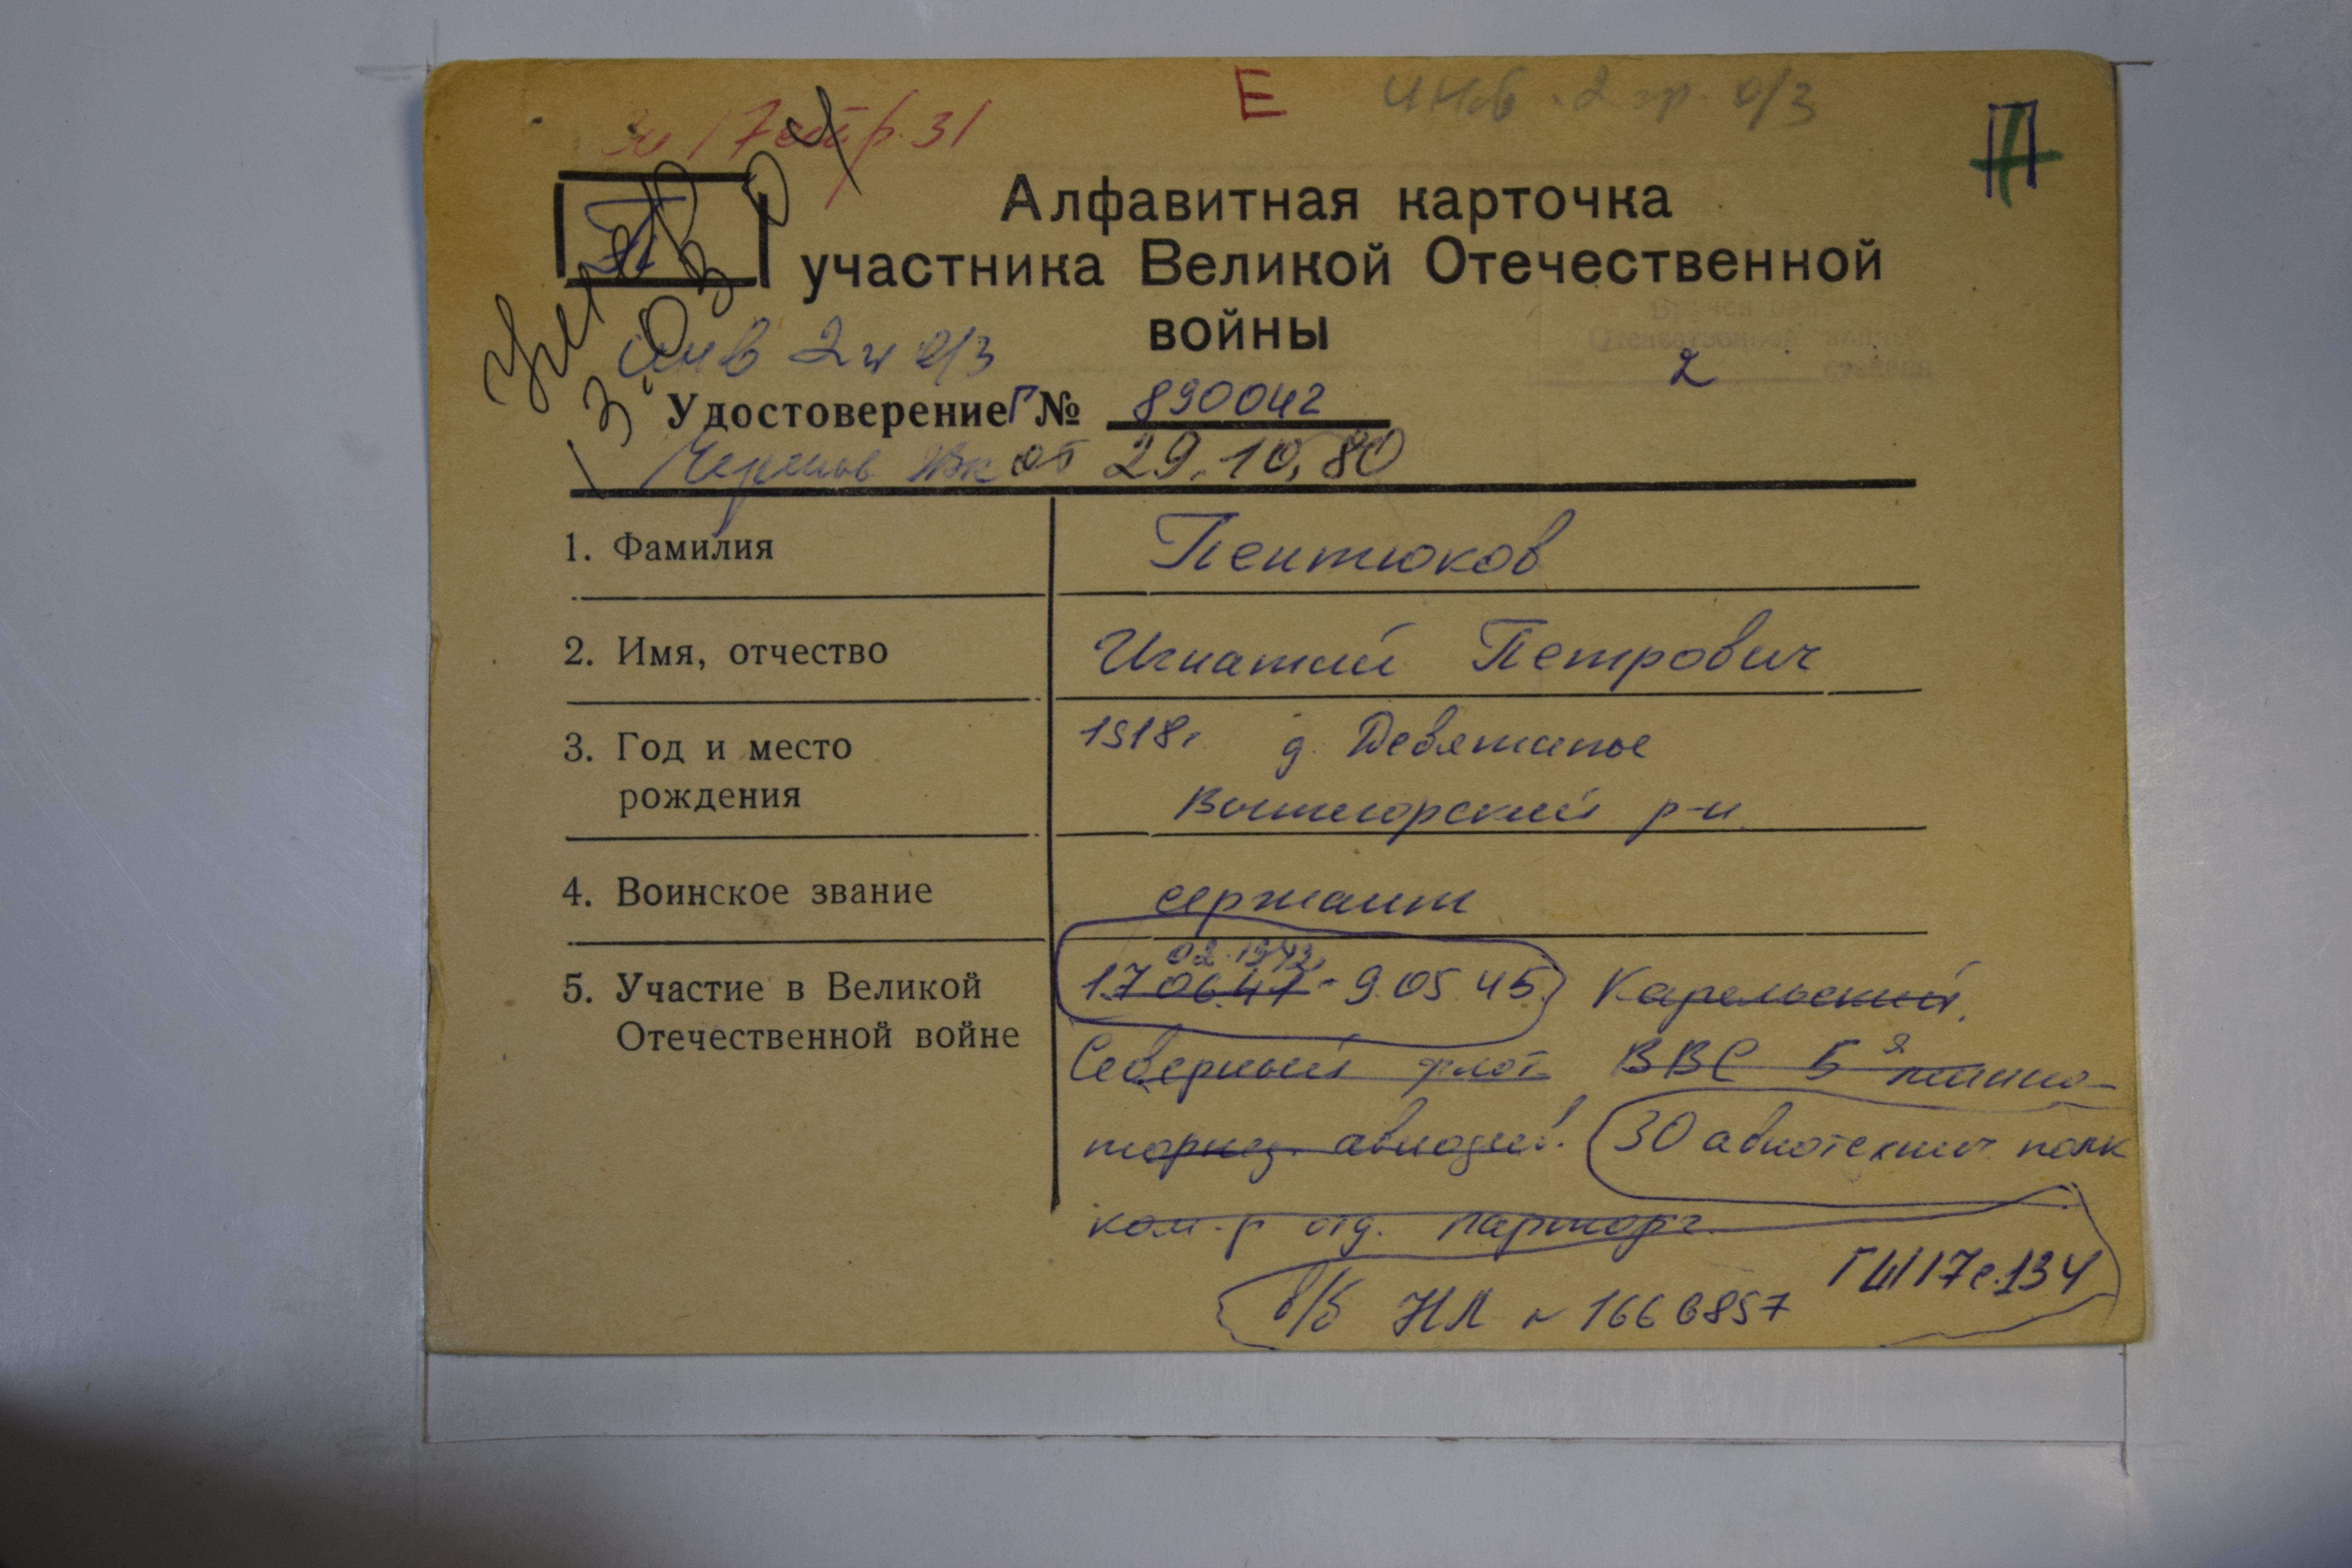 Е инв. 2 гр. о/з
стр. 31
П
Алфавитная карточка
участника Великой Отечественной
войны
инв 2 гр о/з
2
Удостоверение Г № 890042
Черепов ВК от 29.10.80
1. Фамилия Пентюков
2. Имя, отчество Игнатий Петрович
3. Год и место рождения 1918г д. Девятины
Вытегорский р-н
4. Воинское звание сержант
02.1942
5. Участие в Великой 17.06.41 - 9.05.45 Карельский,
Отечественной войне Северный флот ВВС 5я минно-
торпед. авиадив. 30 авиатехнич полк
ком-р отд. парторг
ГШ 17 с. 134
в/б НЛ № 1666857